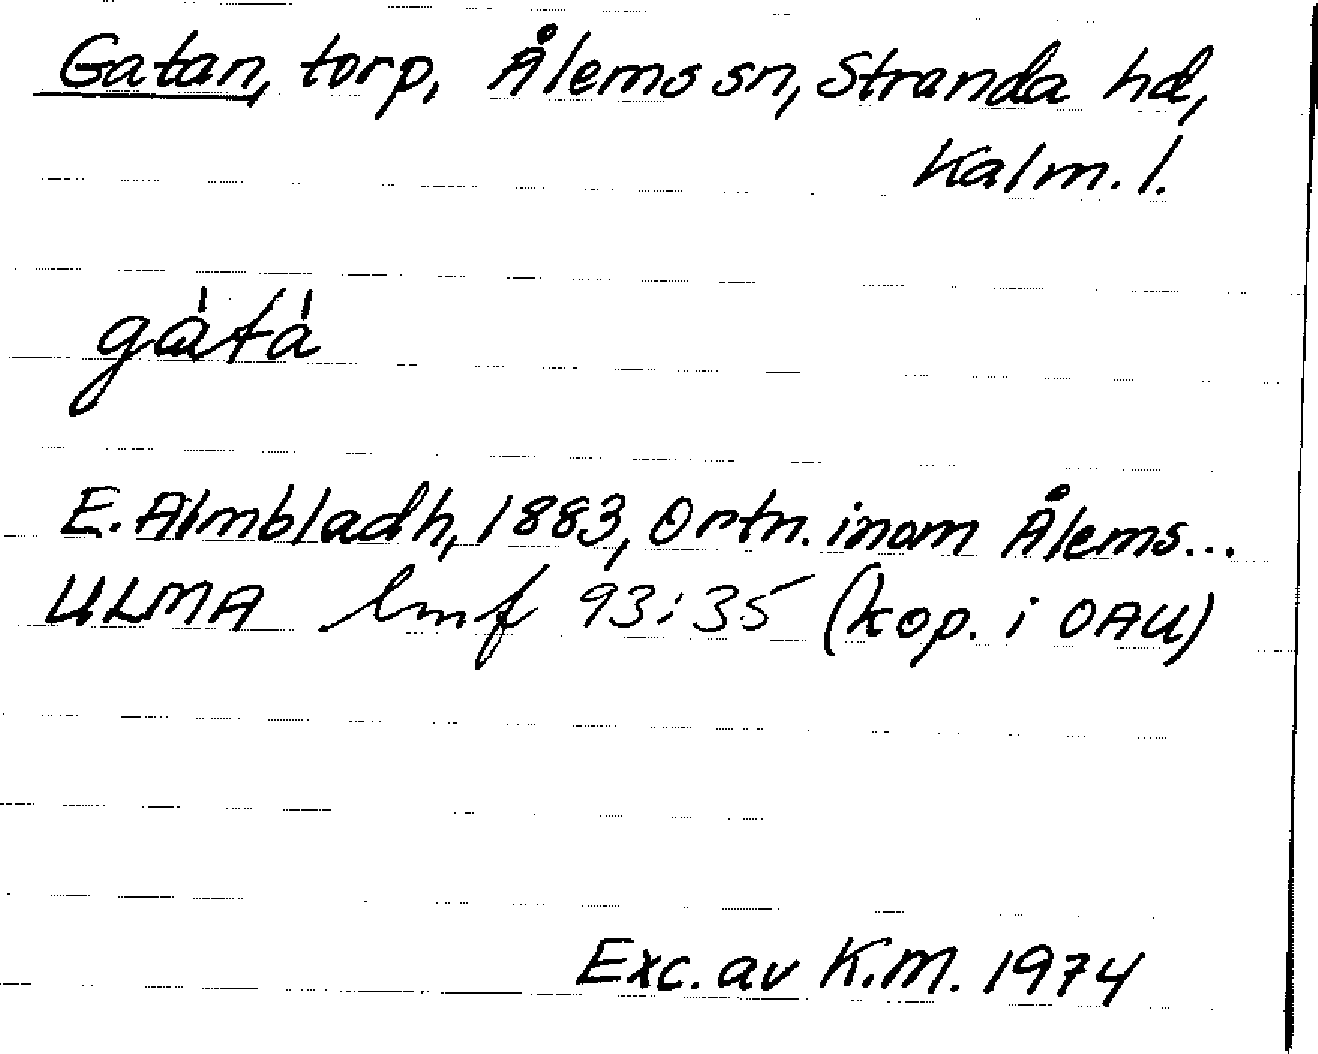 Gatan, torp, Ålems sn, Stranda hd,
Kalm. l.
gàtá
E. Almbladh, 1883, Ortn. inom Ålems...
ULMA lmf 93:35 (kop. i OAU)
Exc. av K.M. 1974